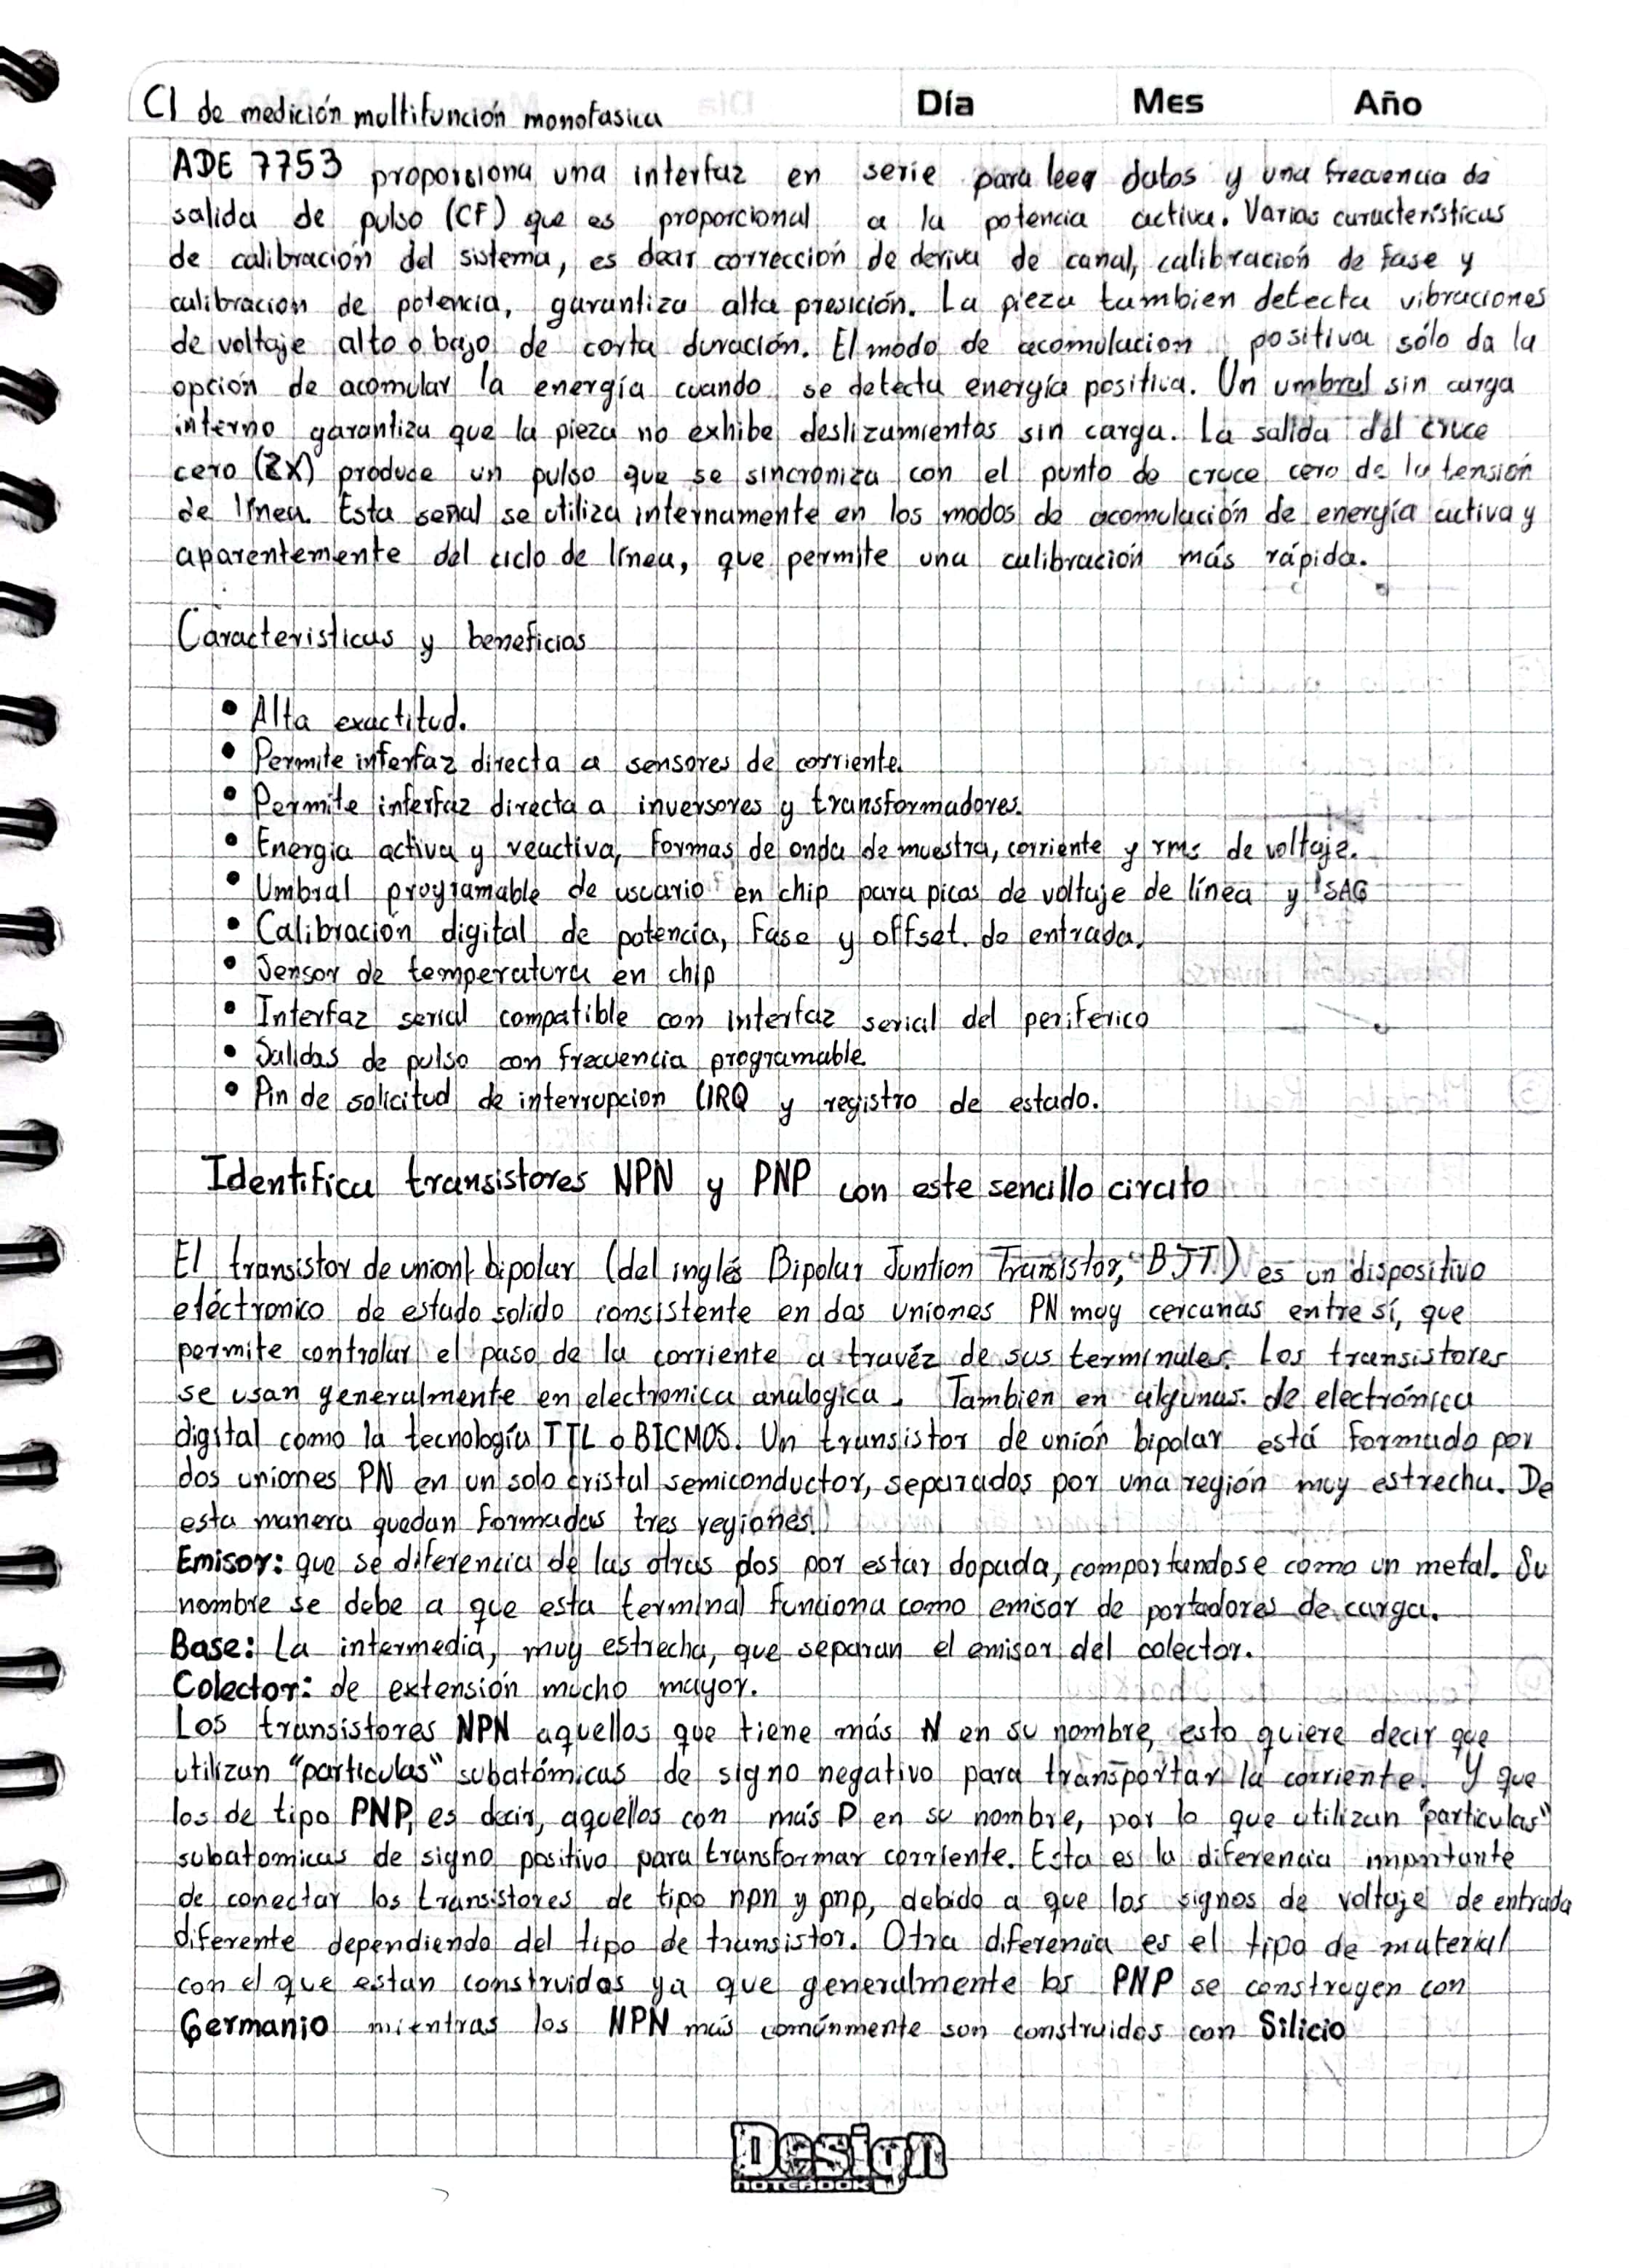 CI de medición multifunción monofasica
Día Mes Año
ADE 7753 proporsiona una interfaz en serie para leer datos y una frecuencia de
salida de pulso (CF) que es proporcional a la potencia activa. Varias características
de calibración del sistema, es decir corrección de deriva de canal, calibración de fase y
calibracion de potencia, garantiza alta presición. La pieza tambien detecta vibraciones
de voltaje alto o bajo de corta duración. El modo de acomulacion positiva sólo da la
opción de acomular la energía cuando se detecta energía positiva. Un umbral sin carga
interno garantiza que la pieza no exhibe deslizamientos sin carga. La salida del cruce
cero (ZX) produce un pulso que se sincroniza con el punto de cruce cero de la tensión
de línea. Esta señal se utiliza internamente en los modos de acomulación de energía activa y
aparentemente del ciclo de línea, que permite una calibración más rápida.
Caracteristicas y beneficios
• Alta exactitud.
• Permite interfaz directa a sensores de corriente.
• Permite interfaz directa a inversores y transformadores.
• Energia activa y reactiva, formas de onda de muestra, corriente y rms de voltaje.
• Umbral programable de usuario en chip para picas de voltaje de línea y SAG
• Calibración digital de potencia, Fase y offset de entrada.
• Sensor de temperatura en chip
• Interfaz serial compatible con interfaz serial del periferico
• Salidas de pulso con frecuencia programable
• Pin de solicitud de interrupcion (IRQ y registro de estado.
Identifica transistores NPN y PNP con este sencillo circito
El transistor de union bipolar (del inglés Bipolar Juntion Transistor, "BJT") es un dispositivo
eléctronico de estado solido consistente en dos uniones PN muy cercanas entre sí, que
permite controlar el paso de la corriente a travéz de sus terminales. Los transistores
se usan generalmente en electronica analogica. Tambien en algunas de electrónica
digital como la tecnología TTL o BICMOS. Un transistor de unión bipolar está formado por
dos uniones PN en un solo cristal semiconductor, separados por una región muy estrecha. De
esta manera quedan formadas tres regiones:
Emisor: que se diferencia de las otras dos por estar dopada, comportandose como un metal. Su
nombre se debe a que esta terminal funciona como emisor de portadores de carga.
Base: La intermedia, muy estrecha, que separan el emisor del colector.
Colector: de extensión mucho mayor.
Los transistores NPN aquellos que tiene más N en su nombre, esto quiere decir que
utilizan "particulas" subatómicas de signo negativo para transportar la corriente. Y que
los de tipo PNP, es decir, aquellos con más P en su nombre, por lo que utilizan "particulas"
subatomicas de signo positivo para transformar corriente. Esta es la diferencia importante
de conectar los transistores de tipo npn y pnp, debido a que los signos de voltaje de entrada
diferente dependiendo del tipo de transistor. Otra diferencia es el tipo de material
con el que estan construidos ya que generalmente los PNP se construyen con
Germanio mientras los NPN más comúnmente son construidos con Silicio
Design
NOTEBOOK